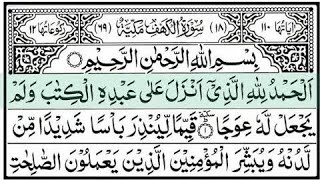 اٰيَاتُهَا ١١٠ (١٨) سُوْرَةُ الْكَهْفِ مَكِّيَّةٌ (٦٩) رُكُوْعَاتُهَا ١٢
بِسْمِ اللهِ الرَّحْمٰنِ الرَّحِيْمِ
اَلْحَمْدُ لِلّٰهِ الَّذِيْٓ اَنْزَلَ عَلٰى عَبْدِهِ الْكِتٰبَ وَلَمْ
يَجْعَلْ لَّهٗ عِوَجًا ۜ ١ قَيِّمًا لِّيُنْذِرَ بَاْسًا شَدِيْدًا مِّنْ
لَّدُنْهُ وَيُبَشِّرَ الْمُؤْمِنِيْنَ الَّذِيْنَ يَعْمَلُوْنَ الصّٰلِحٰتِ